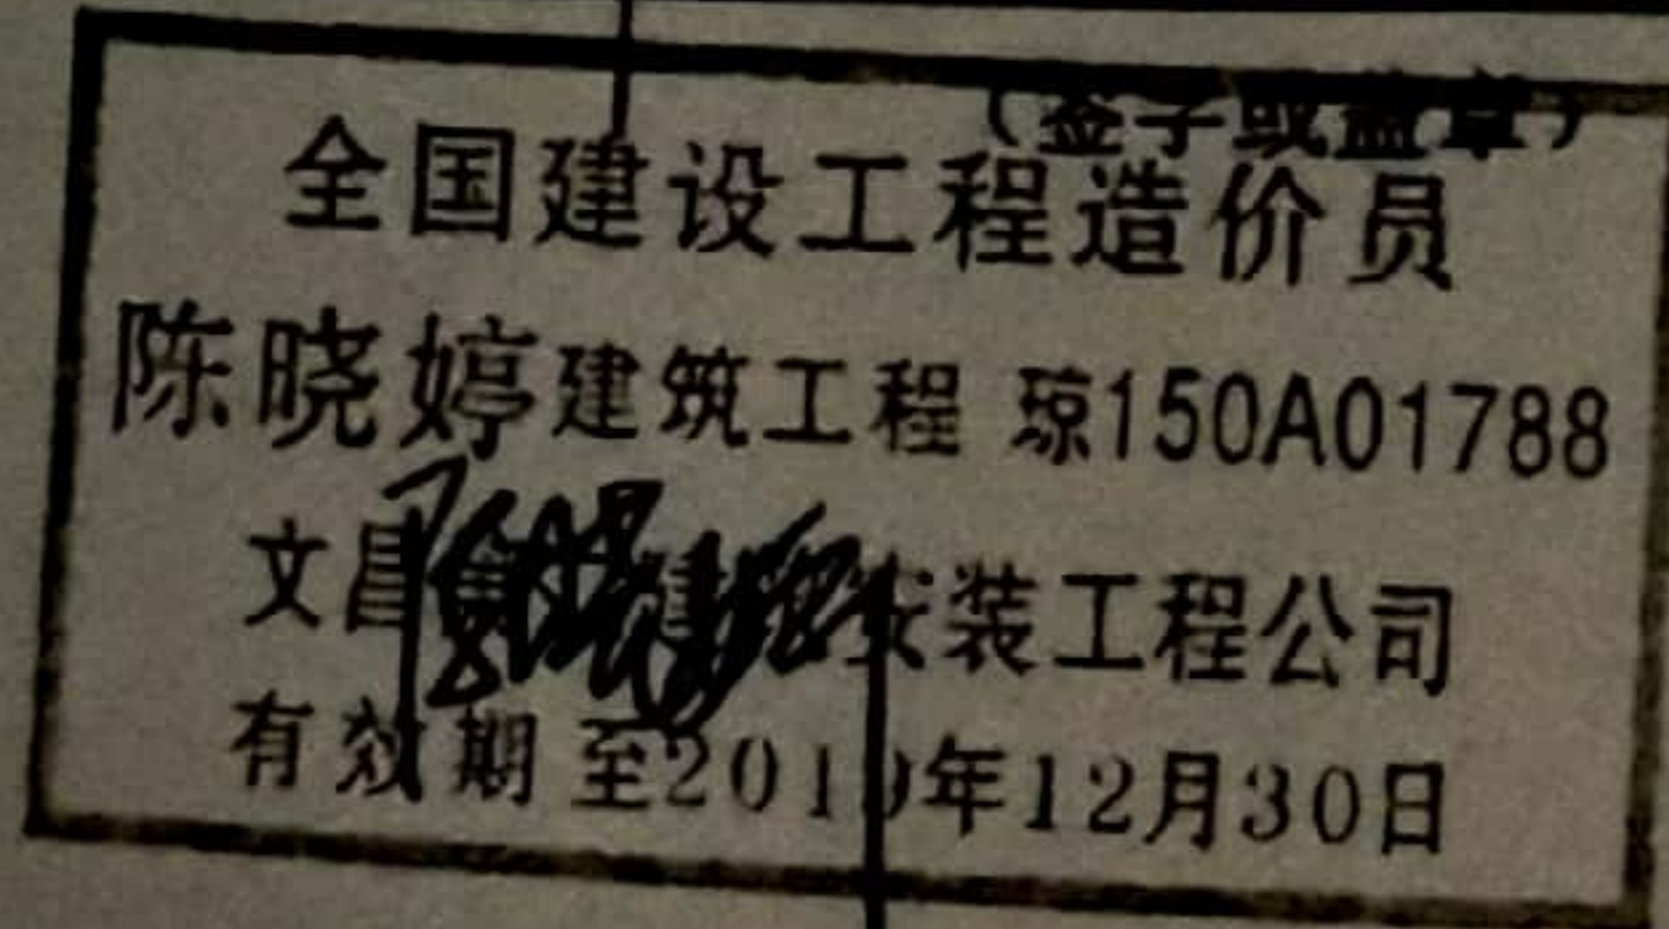 （签字或盖章）
全国建设工程造价员
陈晓婷建筑工程 琼150A01788
文昌 建 安装工程公司
有效期至201 年12月30日